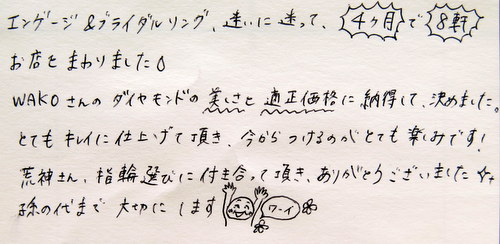 エンゲージ&ブライダルリング、迷いに迷って、4ヶ月で8軒
お店をまわりました
WAKOさんのダイヤモンドの美しさと適正価格に納得して、決めました。
とてもキレイに仕上げて頂き、今からつけるのがとても楽しみです!
荒神さん、指輪選びに付き合って頂き、ありがとうございました
孫の代まで大切にします ワーイ